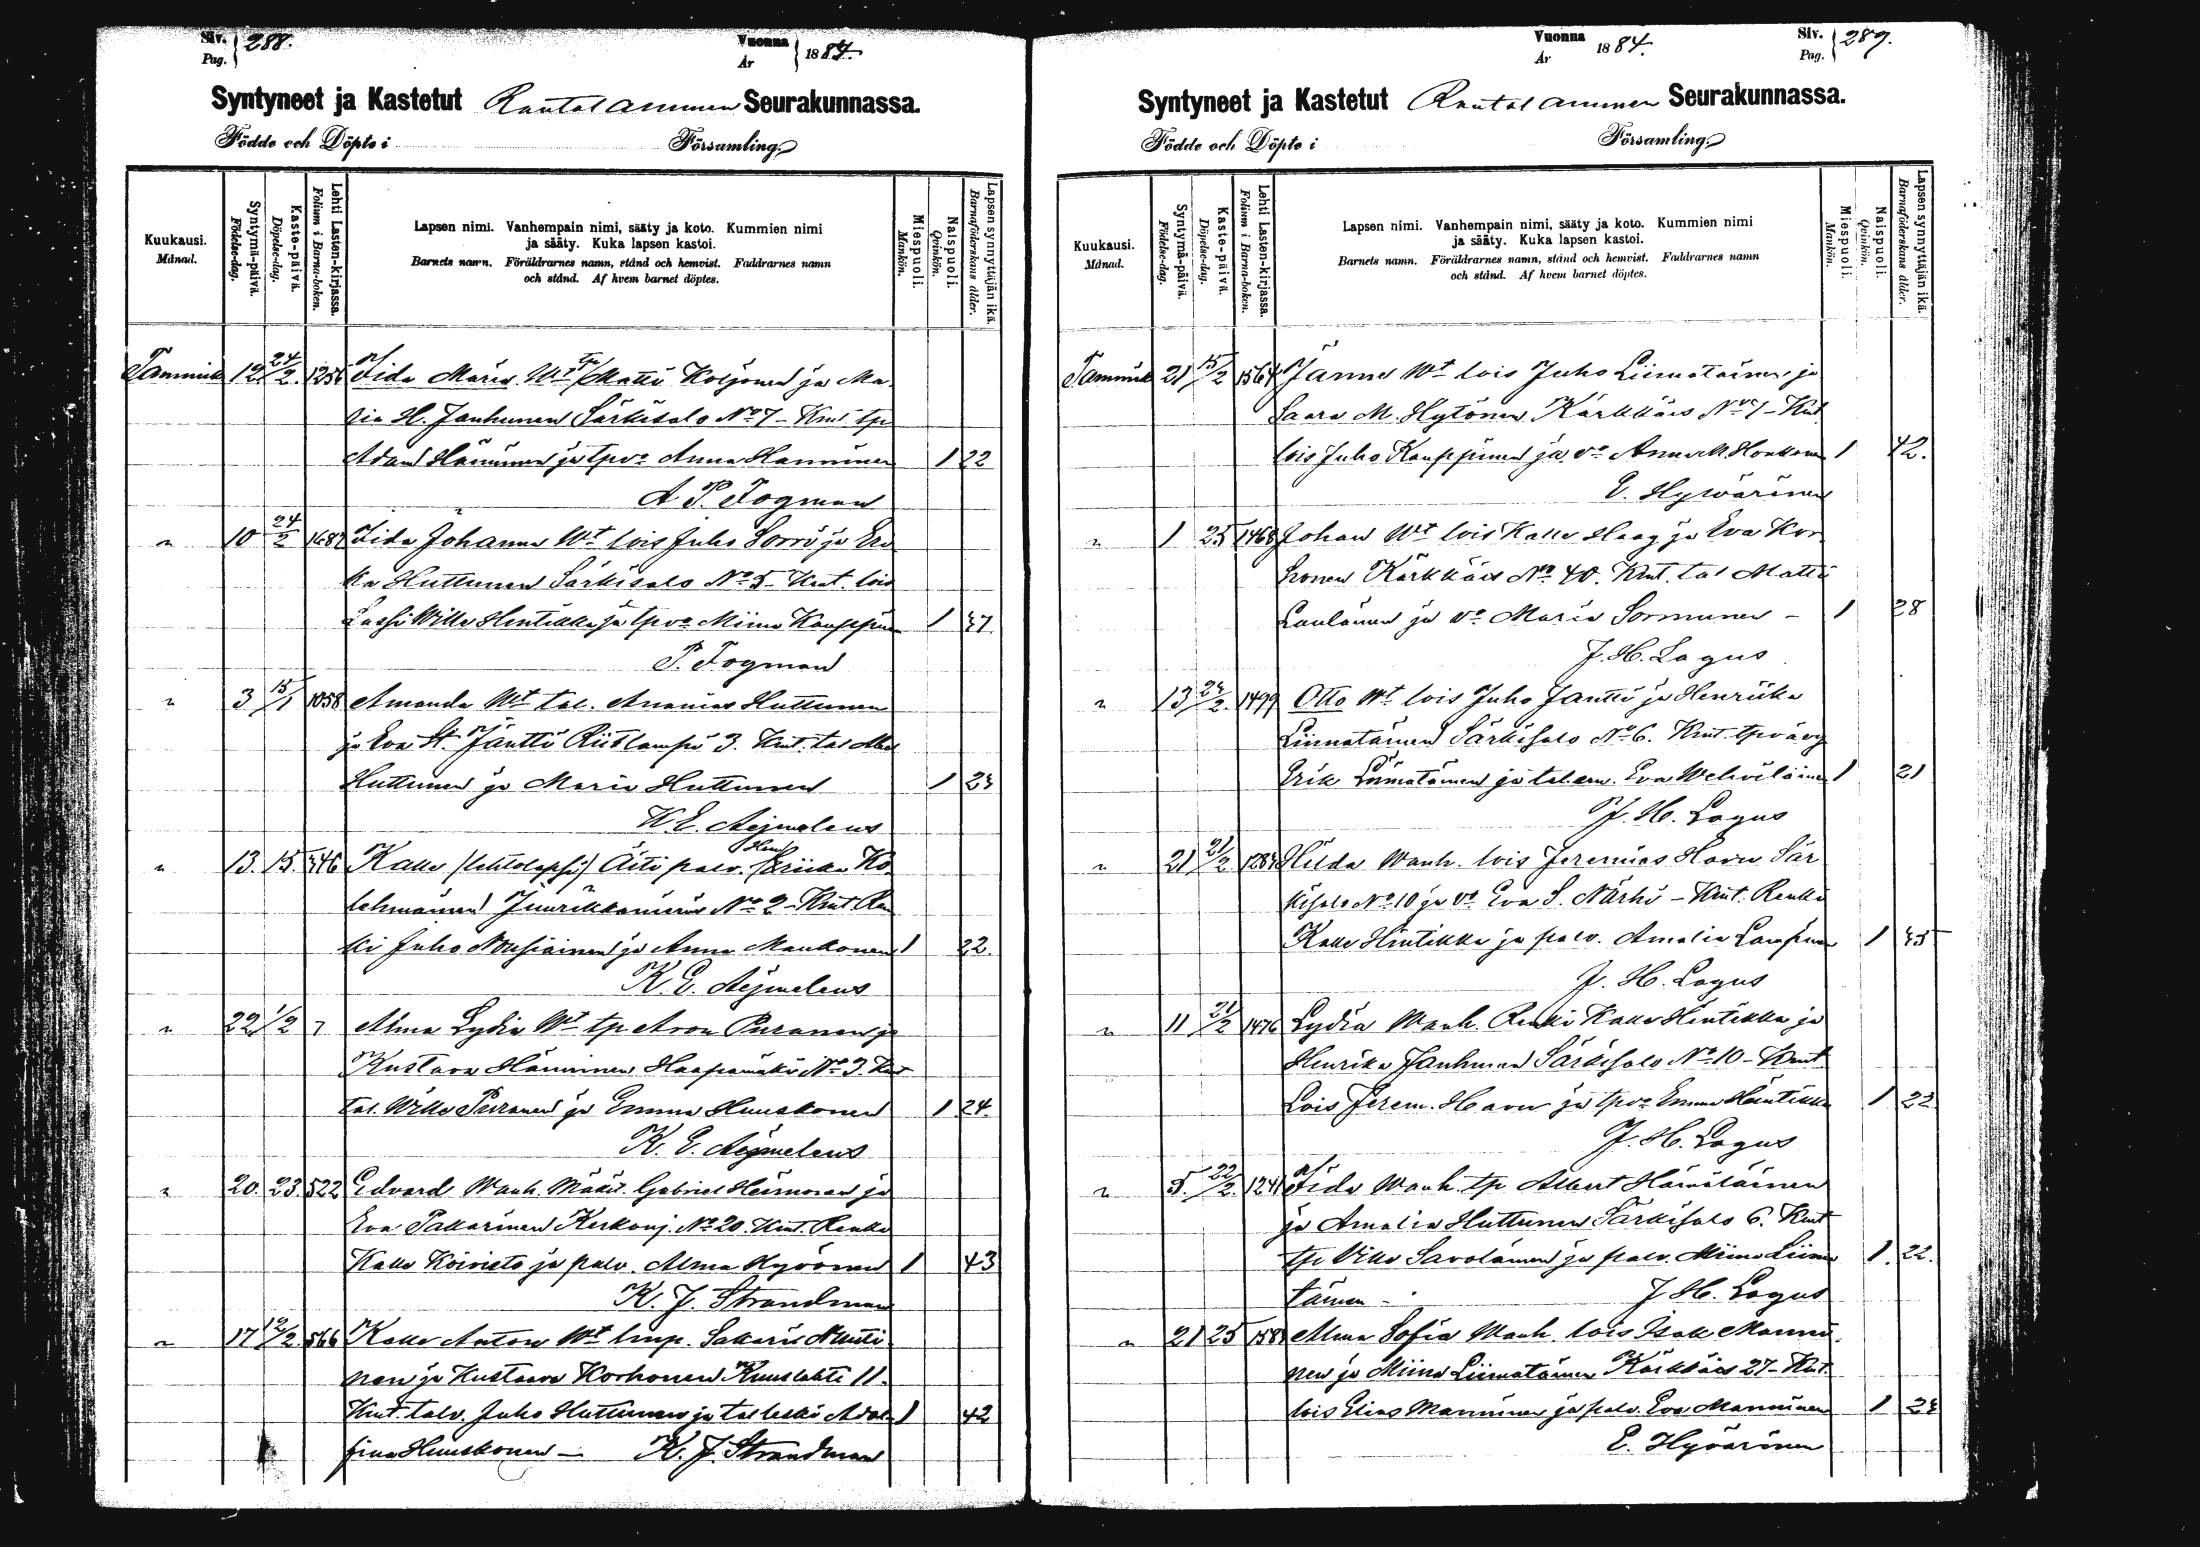 Siv. Pag. 288.
Vuonna År 1884.
Syntyneet ja Kastetut Rautalammen Seurakunnassa.
Födde och Döpte i Församling.
Kuukausi. Månad.
Syntymä-päivä. Födelse-dag.
Kaste-päivä. Döpelse-dag.
Lehti Lasten-kirjassa. Folium i Barna-boken.
Lapsen nimi. Vanhempain nimi, sääty ja koto. Kummien nimi
ja sääty. Kuka lapsen kastoi.
Barnets namn. Föräldrarnes namn, stånd och hemvist. Faddrarnes namn
och stånd. Af hvem barnet döptes.
Miespuoli. Mankön.
Naispuoli. Qvinkön.
Lapsen synnyttäjän ikä. Barnaföderskans ålder.
Tammik 12 24/2. 1256 Iida Maria Wt tp Matti Koljonen ja Ma
ria H. Janhunen Särkisalo No 7 - Kmt tp
Adam Hänninen ja tpvo Anna Hänninen 1 22
A P. Fogman
" 10 24/2 1687 Iida Johanna Wt lois Juho Sorri ja Eri
ka Huttunen Särkisalo No 5 - Kmt. lois
Wille Hintikka ja tpvo Miina Kauppin 1
P. Fogman
" 3 15/1 1058 Amanda Wt tal. Ananias Huttunen
ja Eva St. Jäntti Riislampi 3. Kmt. tal Abel
Huttunen ja Maria Huttunen 1
K. E. Aejmelaeus
" 13. 15. Kalle (lehtolapsi) Äiti palv. Henriika Ko
lehmainen No 2 - Kmt. Ren
ki Juho Nousiainen ja Anna Maukonen 1 22.
K. E. Aejmelaeus
" 22 1/2 ? Alma Lydia Wt tp Aron Puranen ja
Kustava Hänninen Haapamäki No 3. Kmt
tal. Wille Puranen ja Emma Huuskonen 1 24.
K. E. Aejmelaeus
" 20. 23. 522 Edvard Wanh. Mäkit. Gabriel Heimonen ja
Eva Pakarinen Kerkonj. No 20. Kmt. Renki
Kalle Koivisto ja palv. Alma Hyvönen 1 43
K. J. Strandman
" 17 12/2. 566 Kalle Anton Wt Sakaris
nen ja Kustaava Korhonen Kuuslahti 11.
Kmt. talv. Juho Huttunen ja tal leski Adol 1 42
fina Huuskonen - K. J. Strandman
Vuonna År 1884.
Siv. Pag. 289.
Syntyneet ja Kastetut Rautalammen Seurakunnassa.
Födde och Döpte i Församling.
Kuukausi. Månad.
Syntymä-päivä. Födelse-dag.
Kaste-päivä. Döpelse-dag.
Lehti Lasten-kirjassa. Folium i Barna-boken.
Lapsen nimi. Vanhempain nimi, sääty ja koto. Kummien nimi
ja sääty. Kuka lapsen kastoi.
Barnets namn. Föräldrarnes namn, stånd och hemvist. Faddrarnes namn
och stånd. Af hvem barnet döptes.
Miespuoli. Mankön.
Naispuoli. Qvinkön.
Lapsen synnyttäjän ikä. Barnaföderskans ålder.
Tammik 21 15/2 1564 Janne Wt lois Juho Liimatainen ja
Saara M. Hytönen Kärkkäis - Kmt
lois Juho Kauppinen ja vo Anna M. Honkonen 1 42.
E. Hyvärinen
" 1 25 1468 Johan Wt lois Kalle Haag ja Eva Kor
honen Kärkkäis No 40. Kmt. tal Matti
Laulainen ja vo Maria Sormunen - 1 28
J. H. Lagus
" 13 24/2. 1499 Otto Wt lois Juho Jäntti ja Henriika
Liimatainen Särkisalo No 6. Kmt.
Erik Liimatainen ja Eva Wehviläinen 1 21
J. H. Lagus
" 21 21/2 Hilda Wanh. lois Jeremias Havu Sär
kisalo No 10 ja vo Eva S. Närhi - Kmt. Renki
Kalle Hintikka ja palv. Amalia 1
J. H. Lagus
" 11 21/2 1476 Lydia Wanh. Renki Kalle Hintikka ja
Henrika Janhunen Särkisalo No 10 - Kmt
Lois Jerem. Havu ja tpvo Emma Hintikka 1 22
J. H. Lagus
" 5. 22/2. 1241 Iida Wanh. tp Albert Hämäläinen
ja Amalia Huttunen Särkisalo 6. Kmt
tp Wille Savolainen ja palv. Miina Liima 1. 22.
tainen - J. H. Lagus
" 21 25 Alma Sofia Wanh. lois Isak Manni
nen ja Miina Liimatainen Kärkkäis 27 - Kmt.
lois Elias Manninen ja palv. Eva Manninen 1
E. Hyvärinen